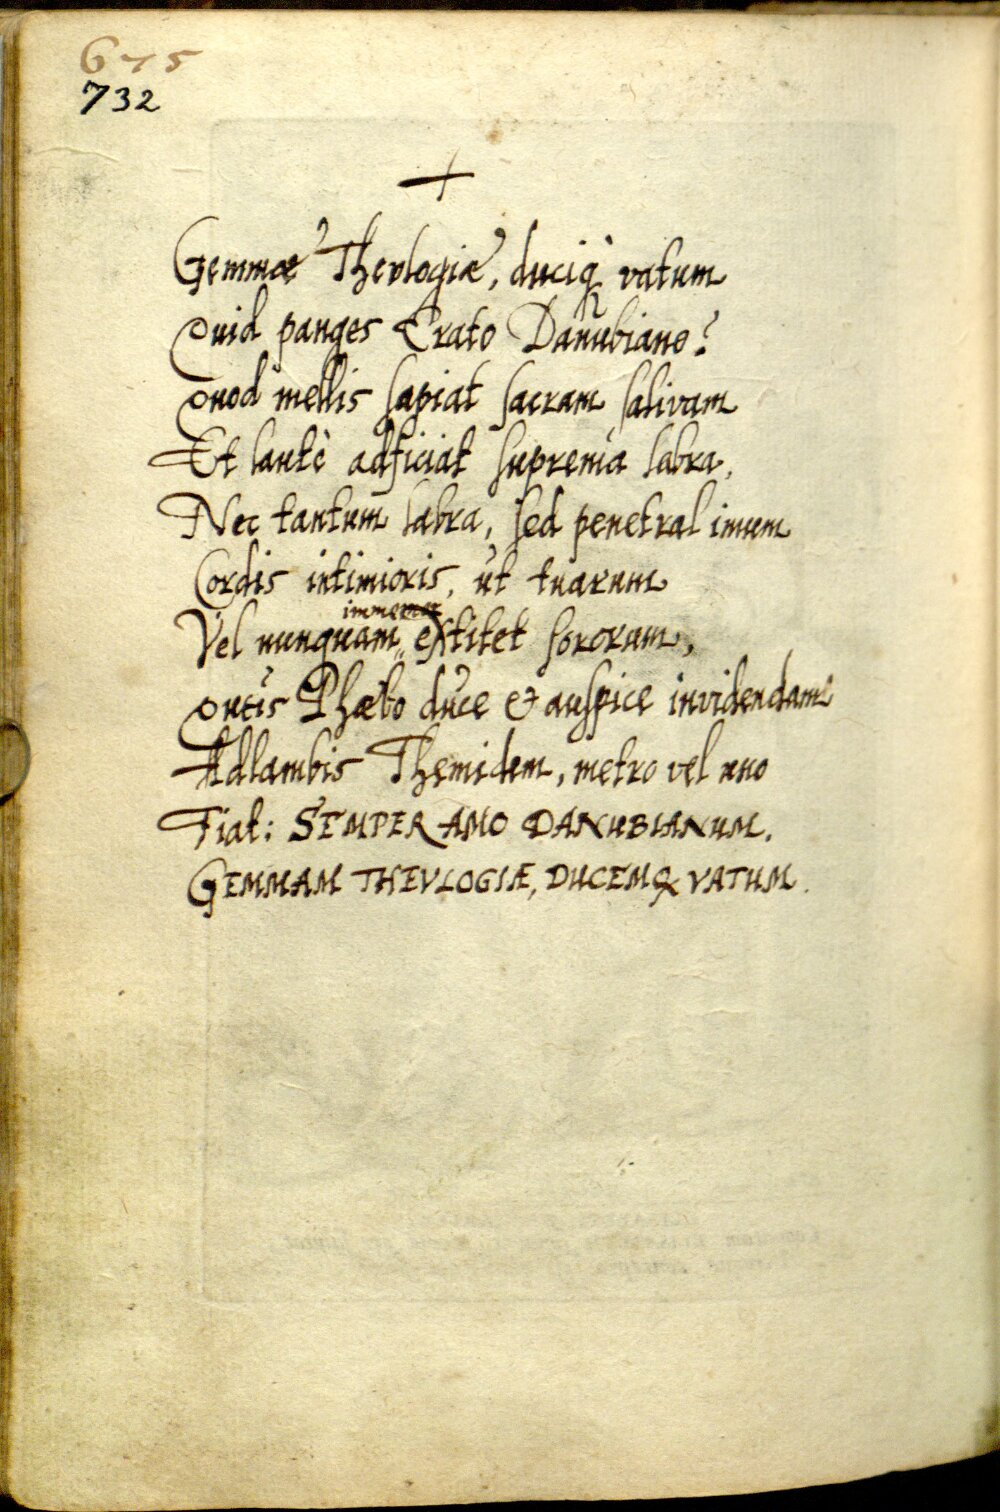 675
732
Gemmæ Theologiæ, duciq̀ vatum
Quid panges Erato Danubiano?
Quod mellis sapiat sacram salivam
Et lautè adficiat suprema labra,
Nec tantum labra, sed penetral imum
Cordis intimioris, ut tuarum
immemor
Vel nunquam exstitet sororum,
Queis Phæbo duce & auspice invidendam
Adlambis Themidem, metro vel uno
Fiat: SEMPER AMO DANUBIANUM.
GEMMAM THEVLOGIÆ, DUCEMQ VATUM.